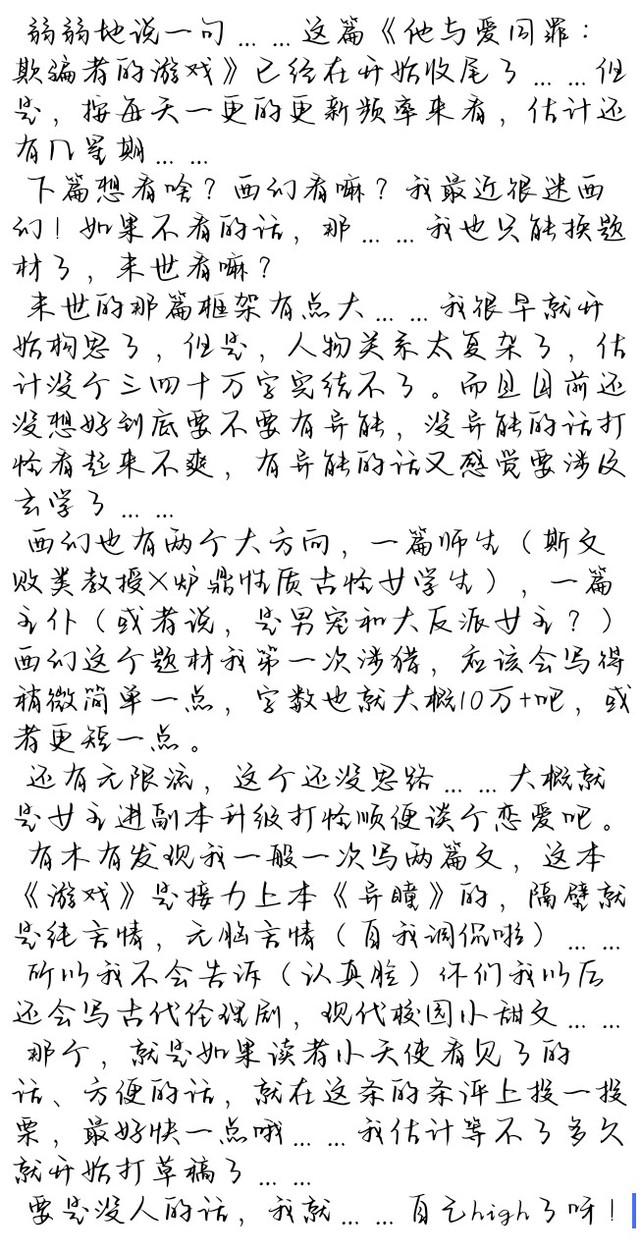 弱弱地说一句……这篇《他与爱同罪：
欺骗者的游戏》已经在开始收尾了……但
是，按每天一更的更新频率来看，估计还
有几星期……
下篇想看啥？西幻看嘛？我最近很迷西
幻！如果不看的话，那……我也只能换题
材了，末世看嘛？
末世的那篇框架有点大……我很早就开
始构思了，但是，人物关系太复杂了，估
计没个三四十万字完结不了。而且目前还
没想好到底要不要有异能，没异能的话打
怪看起来不爽，有异能的话又感觉要涉及
玄学了……
西幻也有两个大方向，一篇师生（斯文
败类教授×炉鼎性质古怪女学生），一篇
主仆（或者说，是男宠和大反派女主？）
西幻这个题材我第一次涉猎，应该会写得
稍微简单一点，字数也就大概10万+吧，或
者更短一点。
还有无限流，这个还没思路……大概就
是女主进副本升级打怪顺便谈个恋爱吧。
有木有发现我一般一次写两篇文，这本
《游戏》是接力上本《异瞳》的，隔壁就
是纯言情，无脑言情（自我调侃啦）……
所以我不会告诉（认真脸）你们我以后
还会写古代伦理剧，现代校园小甜文……
那个，就是如果读者小天使看见了的
话、方便的话，就在这条的条评上投一投
票，最好快一点哦……我估计等不了多久
就开始打草稿了……
要是没人的话，我就……自己high了呀！